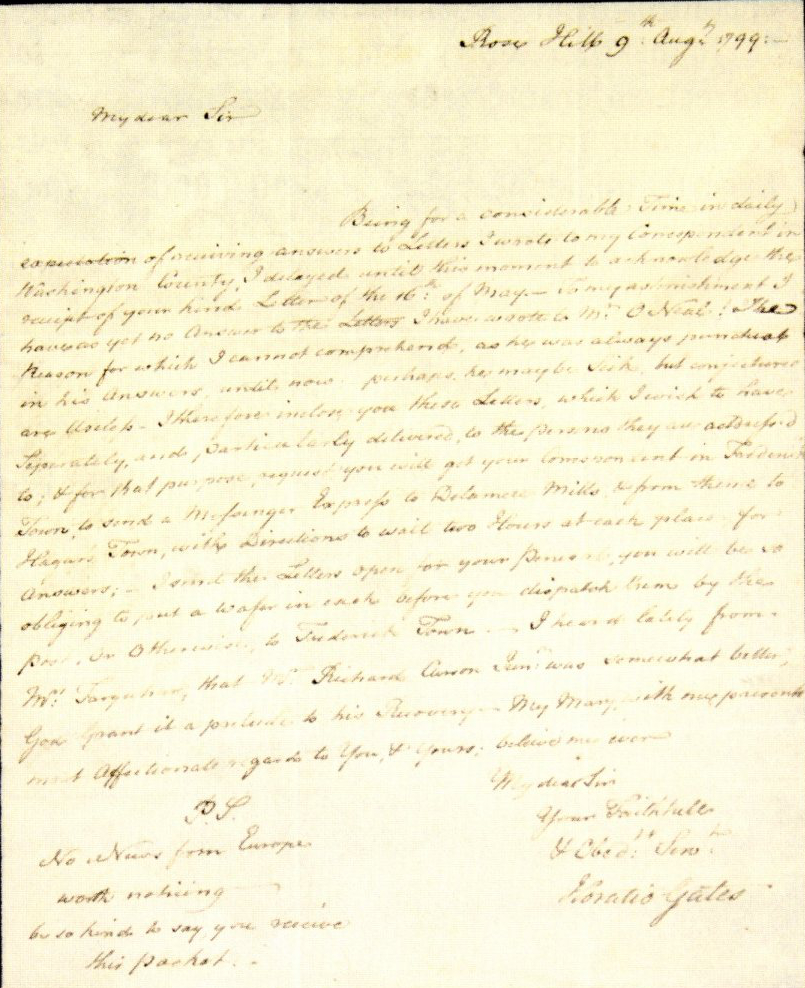 Rose Hill 9th Augt 1799:
My dear Sir
Being for a considerable Time in daily
expectation of receiving answers to Letters I wrote to my Correspondent in
Washington County, I delayed until this moment to acknowledge the
receipt of your kind Letter of the 16th: of May — To my astonishment I
have as yet no Answer to the Letters I have wrote to Mr. O Neal! The
Reason for which I cannot comprehend, as he was always punctual
in his Answers, until now. perhaps, he may be Sick, but conjectures
are Useless — I therefore inclose you these Letters, which I wish to have
Seperately, and particularly delivered, to the persons they are addressed
to; & for that purpose, request you will get your Correspondent in Frederick
Town, to send a Messenger Express to Delamere Mills, & from thence to
Hagars Town, with Directions to wait two Hours at each place for
Answers; — I send the Letters open for your Perusal, you will be so
obliging to put a wafer in each before you dispatch them by the
post, or Otherwise, to Frederick Town — I heard lately from
Mrs. Farquhar, that Mr. Richard Curson Junr was somewhat better,
God Grant it a prelude to his Recovery — My Mary, with me, presents
most Affectionate regards to You, & Yours; believe me ever
My dear Sir
Your Faithfull
& Obedt: Servt:
Horatio Gates
P.S.
No News from Europe
worth noticing
be so kind to say, you receive
this packet. -